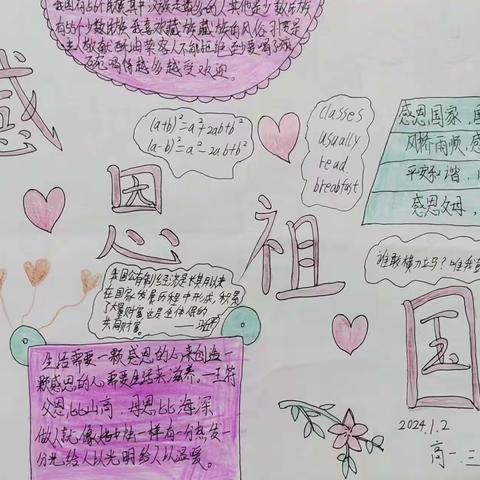 我国有56个民族其中汉族是最多的人其他是少数民族
有55个少数民族我喜欢藏族藏族的风俗习惯是
主人敬献酥油茶客人不能拒绝至少要喝3碗
喝得越多越受欢迎。
感
(a+b)²=a²+2ab+b²
(a-b)²=a²-2ab+b²
classes
usually
read.
breakfast
感恩国家,
风调雨顺,感
平安和谐,
感恩父母,
恩
祖
国
谁敢横刀立马?唯我
我国公有制经济是长期以来
在国家发展历程中形成,积累
了大量财富这是全体人民的
共同财富。
生活需要一颗感恩的心来创造一
颗感恩的心需要生活来滋养。—王符
父恩比山高,母恩比海深
做人就像蜡烛一样有一分热发一
分光给人以光明给人以温暖。
2024.1.2
高一.三